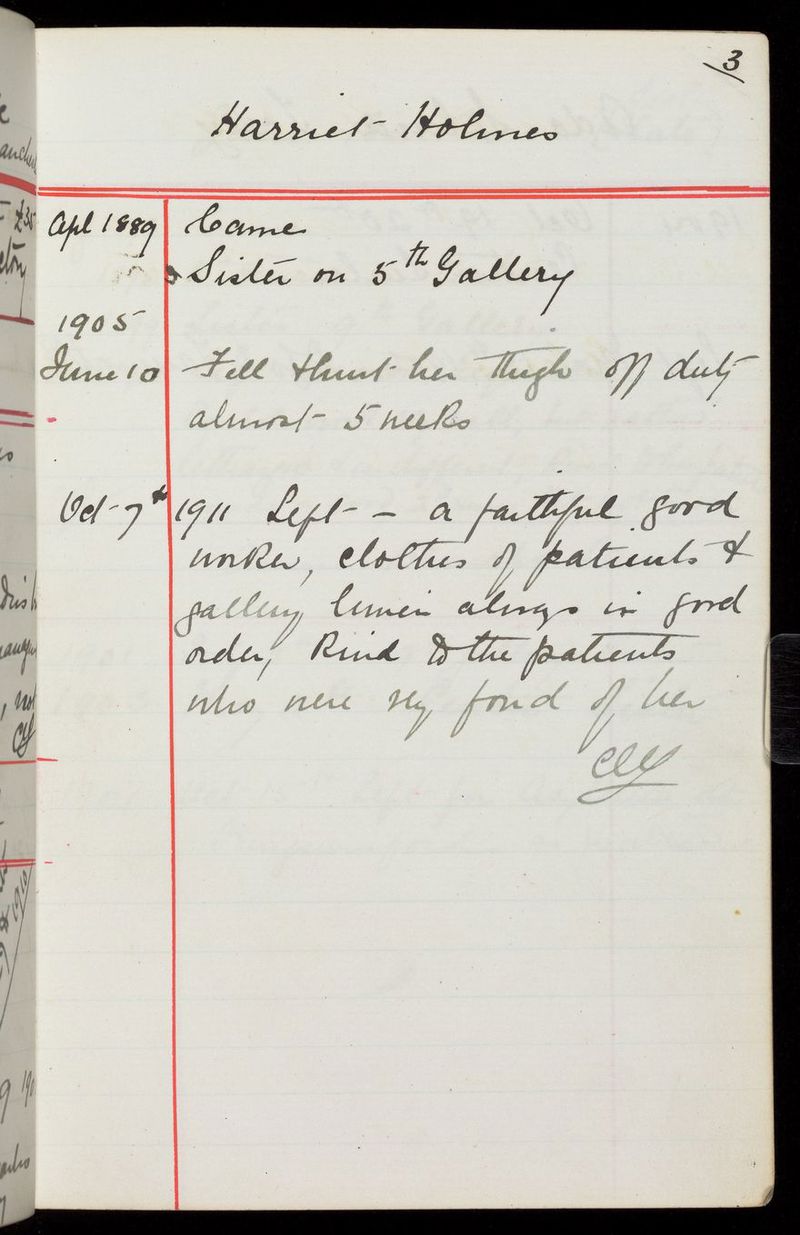 3
Harriet Holmes
Apl 1889 Came
Sister on 5th Gallery
1905
June 10 Fell & hurt her thigh off duty
almost 5 weeks
Oct 7th 1911 Left - a faithful good
worker, clothes of patients &
gallery linen always in good
order, kind to the patients
who were very fond of her